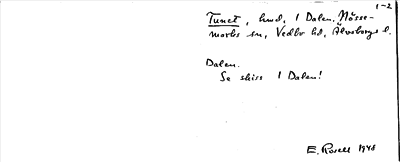 1-2
Tunet, hmd, 1 Dalen. Nösse-
marks sn, Vedbo hd, Älvsborgs l.
Dalen.
Se skiss 1 Dalen!
E. Rosell 1948